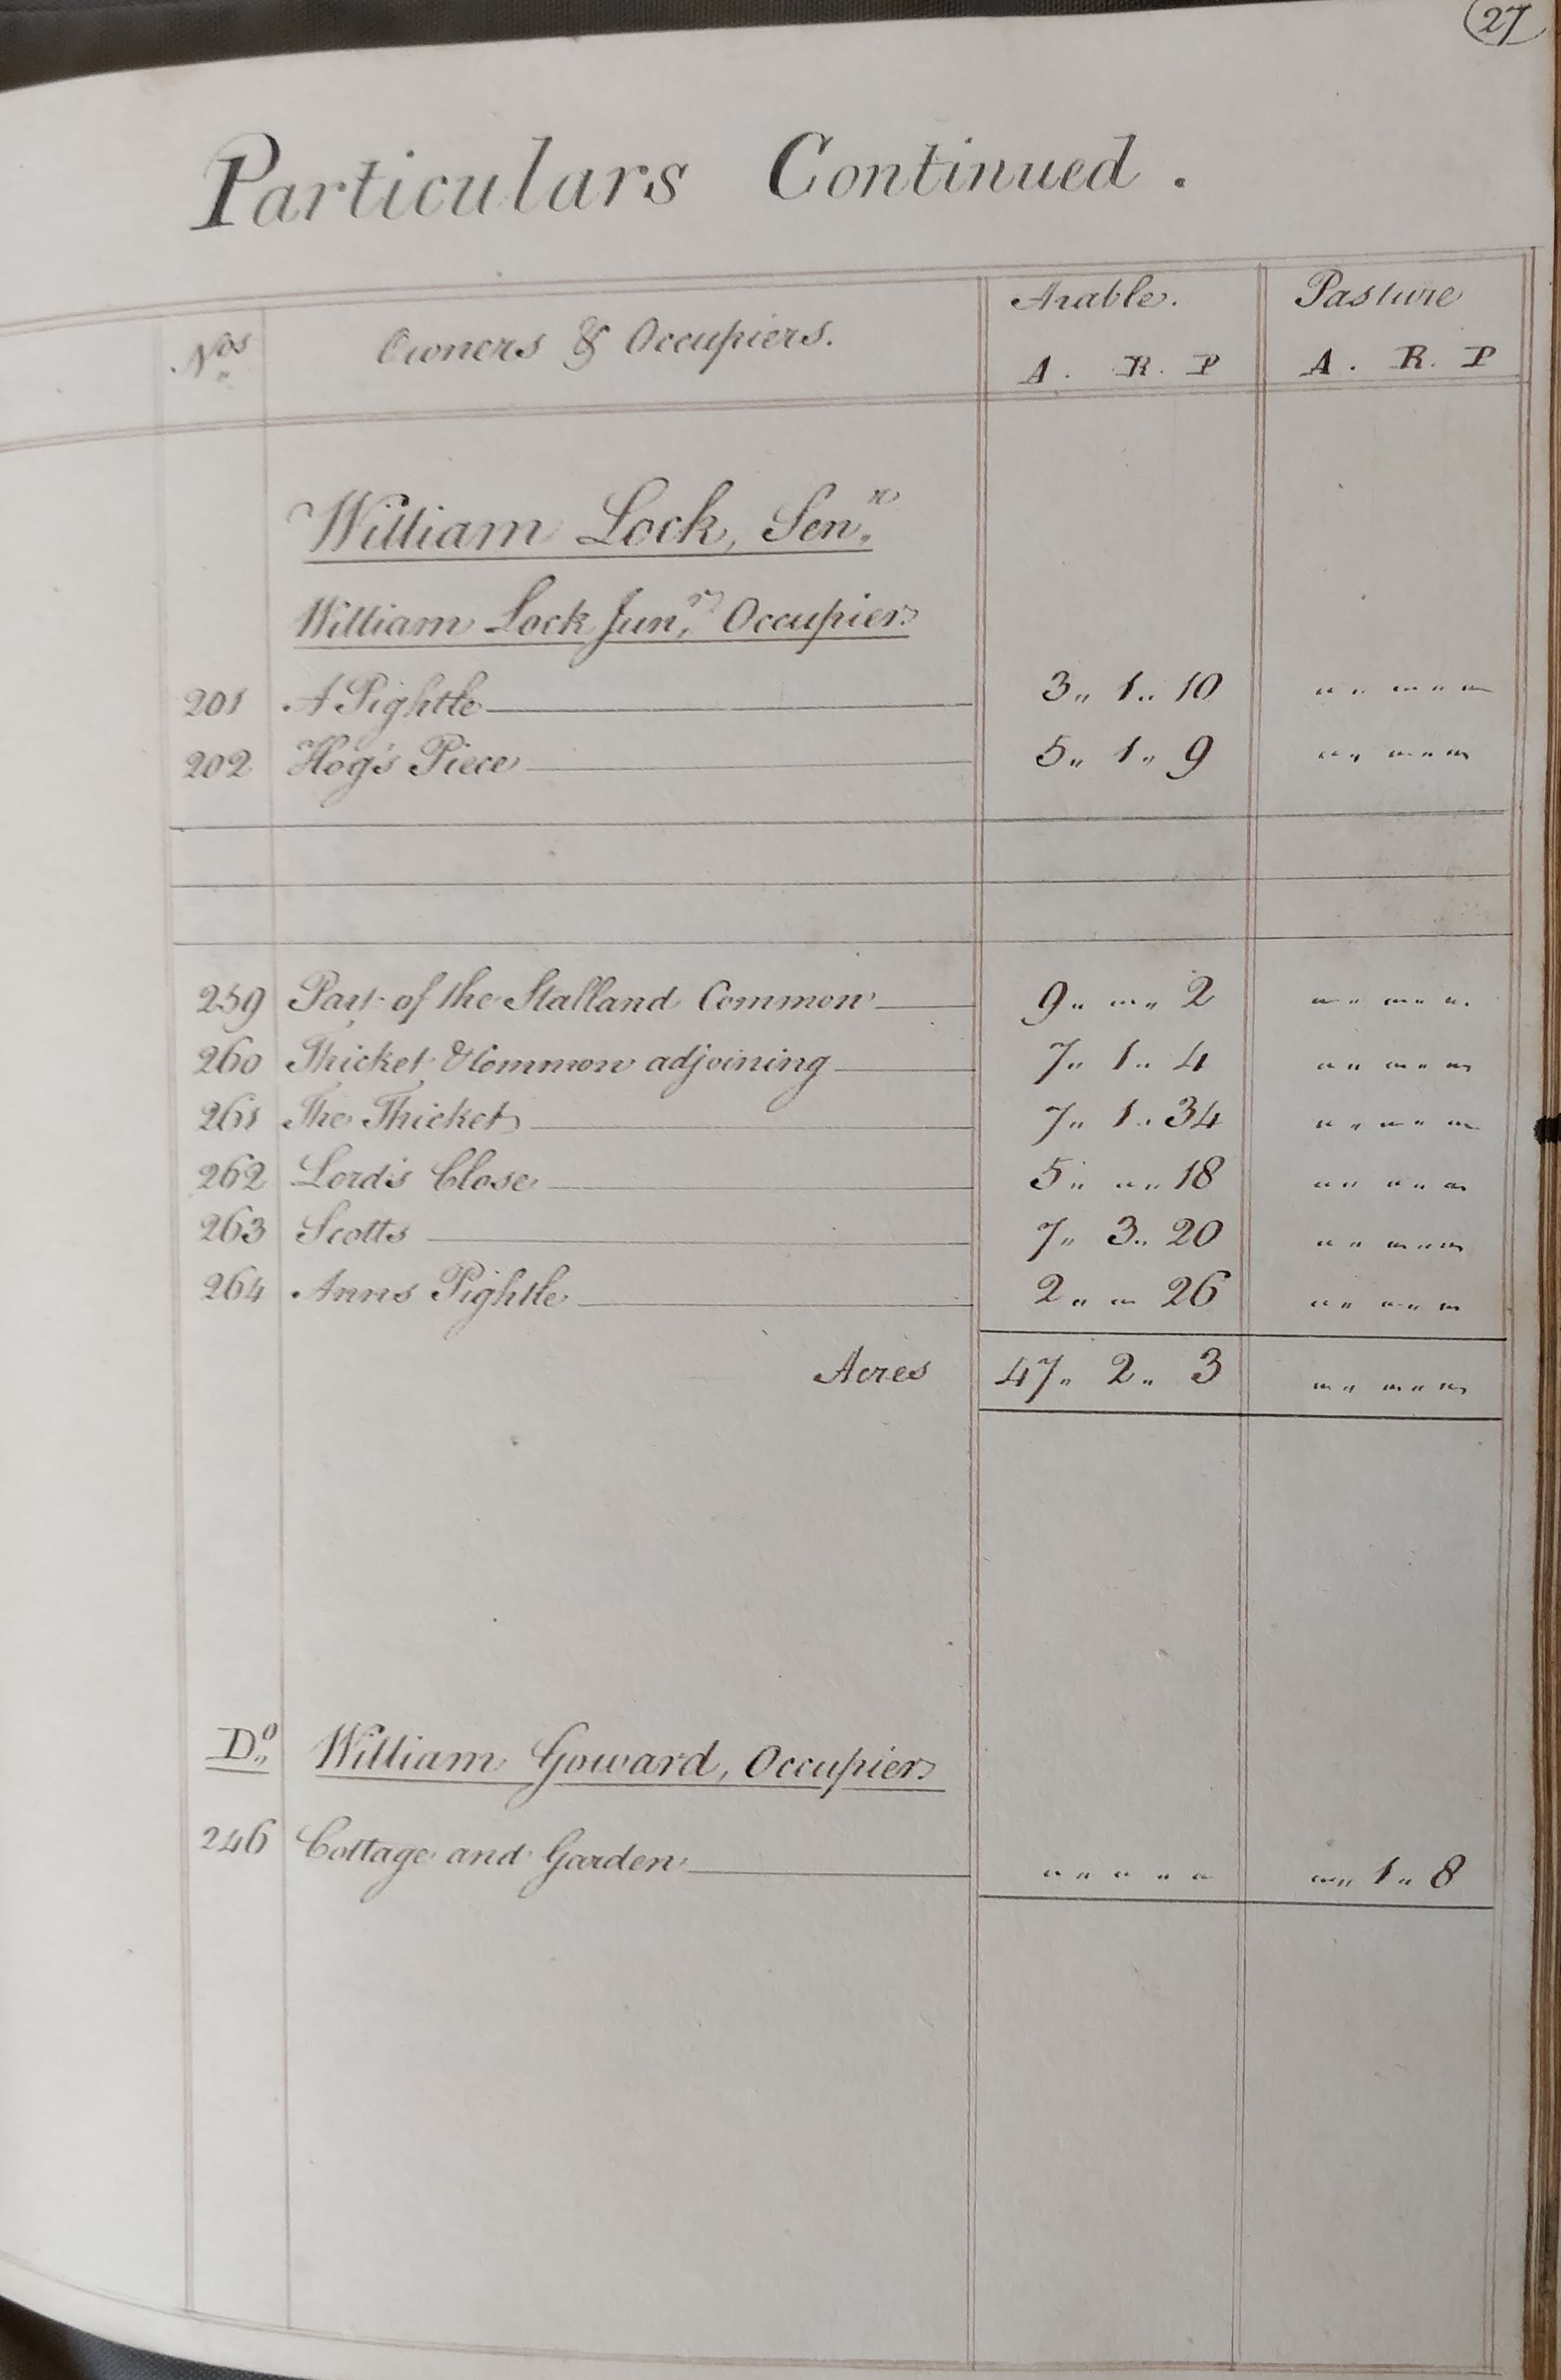 27
Particulars Continued.
Nos Owners & Occupiers. Arable. Pasture
A. R. P A. R. P
William Lock, Senr.
William Lock Junr. Occupier.
201 A Pightle 3 „ 1 „ 10 „ „ „ „ „
202 Hog's Piece 5 „ 1 „ 9 „ „ „ „ „
259 Part of the Stalland Common 9 „ „ „ 2 „ „ „ „ „
260 Thicket & Common adjoining 7 „ 1 „ 4 „ „ „ „ „
261 The Thicket 7 „ 1 „ 34 „ „ „ „ „
262 Lord's Close 5 „ „ „ 18 „ „ „ „ „
263 Scotts 7 „ 3 „ 20 „ „ „ „ „
264 Anns Pightle 2 „ „ 26 „ „ „ „ „
Acres 47 „ 2 „ 3 „ „ „ „ „
Do William Goward, Occupier
246 Cottage and Garden „ „ „ „ „ „ „ 1 „ 8